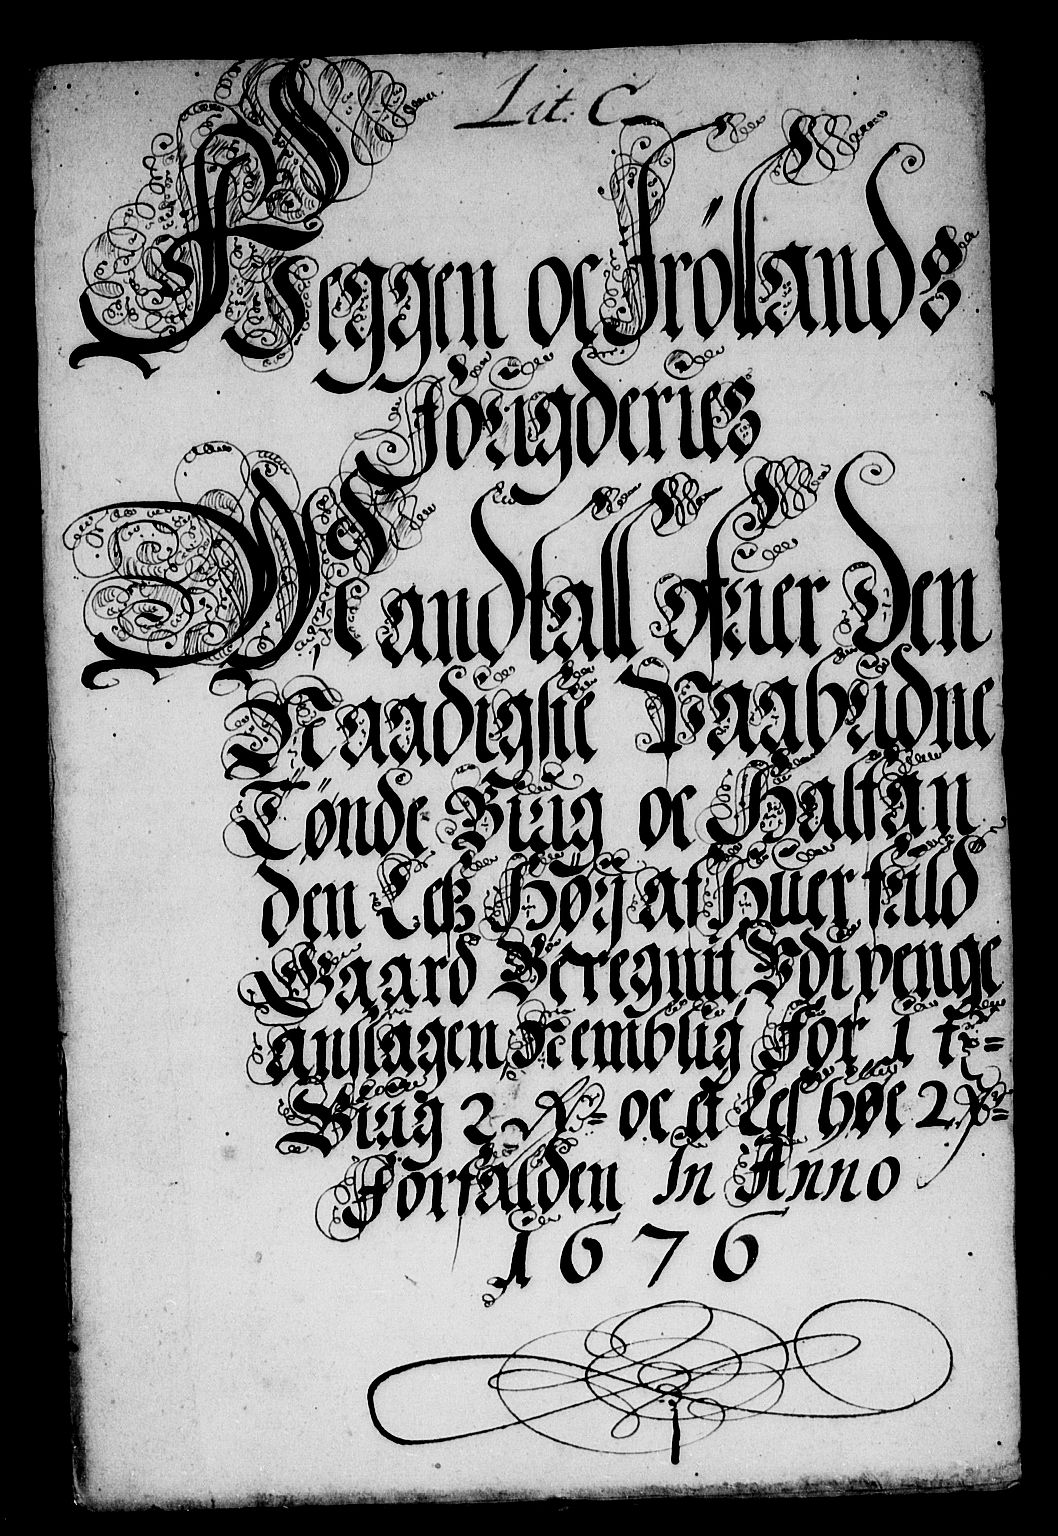 Lit: C
Heggen oc Frölands
Fougderies
Mandtall ofuer den
Naadigste Paabudne
Tønde Biug oc Halfan
den Less Høÿ at Huer fuld
Gaard Beregnit Vdi penge
anslagen Nemblig For 1 tr=
Biug 2 Rr= oc et Les høe 2 Rr=
Forfalden In Anno
1676